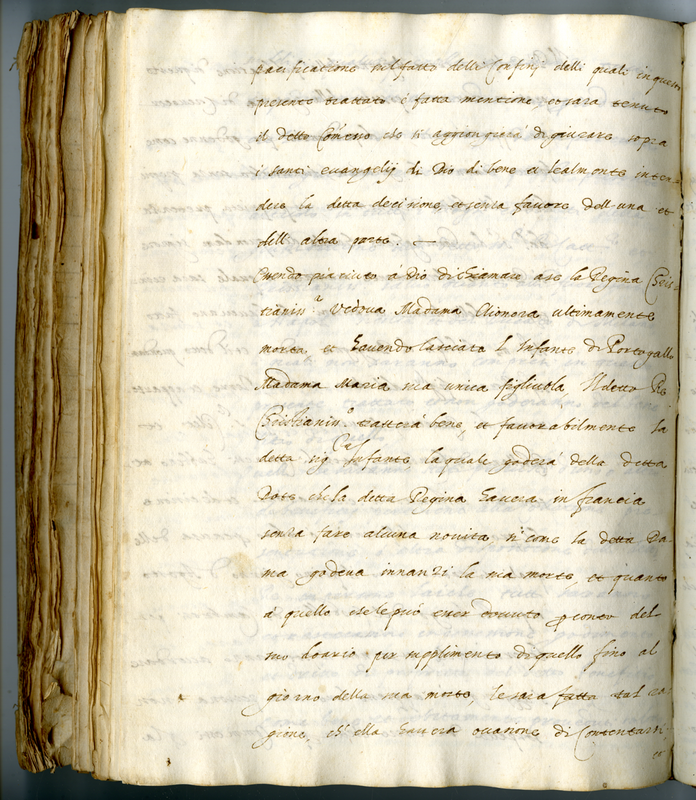 pacificatione sul fatto delli Confini delli quali in questo
presente trattato è fatta mentione, et sara tenuto
il detto che si aggiongerà di giurare sopra
i santi evangelij di Dio di bene et lealmente inten=
dere la detta decisione, et senza favore dell'una et
dell'altra parte. —
Essendo piaciuto à Dio di chiamare a se la Regina Chris
tianiss.ª Vedova Madama Elionora ultimamente
morta, et havendo lasciata l'Infante di Portogallo
Madama Maria sua unica figliuola, Il detto Re
Christianiss.º tratterà bene, et favorabilmente la
detta sig.ra Infante, la quale goderà della detta
Dote che la detta Regina havera in francia
senza fare alcuna novita, si come la detta Da=
ma godeva innanzi la sua morte, et quanto
à quello che se le può esser dovuto per conto del
suo doario per supplimento di quello fino al
giorno della sua morte, le sara fatta tal ra=
gione, ch'ella havera occasione di Contentarsi
et